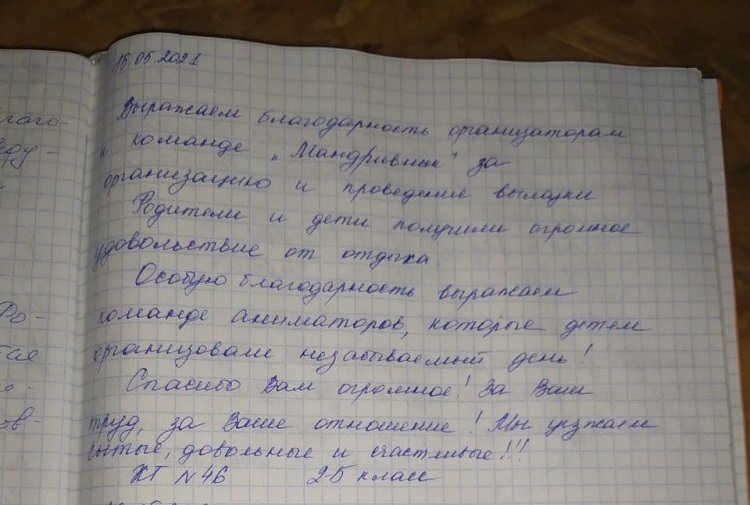 15.05.2021
Выражаем благодарность организаторам
и команде „Мандривник" за
организацию и проведение вылазки
Родители и дети получили огромное
удовольствие от отдыха.
Особую благодарность выражаем
команде аниматоров, которые детем
организовали незабываемый день!
Спасибо Вам огромное! За Ваш
труд, за Ваше отношение! Мы уезжаем
сытые, довольные и счастливые!!!
№ 46 2-Б класс